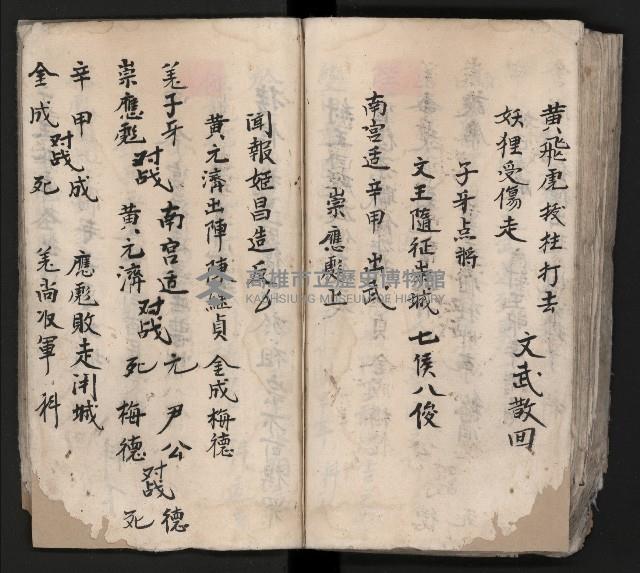 黄飛虎按柱打去
妖狸受傷走　文武散回
子牙点將
文王隨征出城　七侯八俊
南宮适　辛甲　出武
崇應彪上
聞報姬昌造反
黄元濟出陣　陳継貞　金成　梅德
羌子牙　南宫适　尹公　德
崇應彪　对战　黄元濟　对战　死　梅德　对战　死
辛甲　成　應彪敗走闭城
金成　对战　死　羌尚收軍　科
高雄市立歷史博物館
KAOHSIUNG MUSEUM OF HISTORY